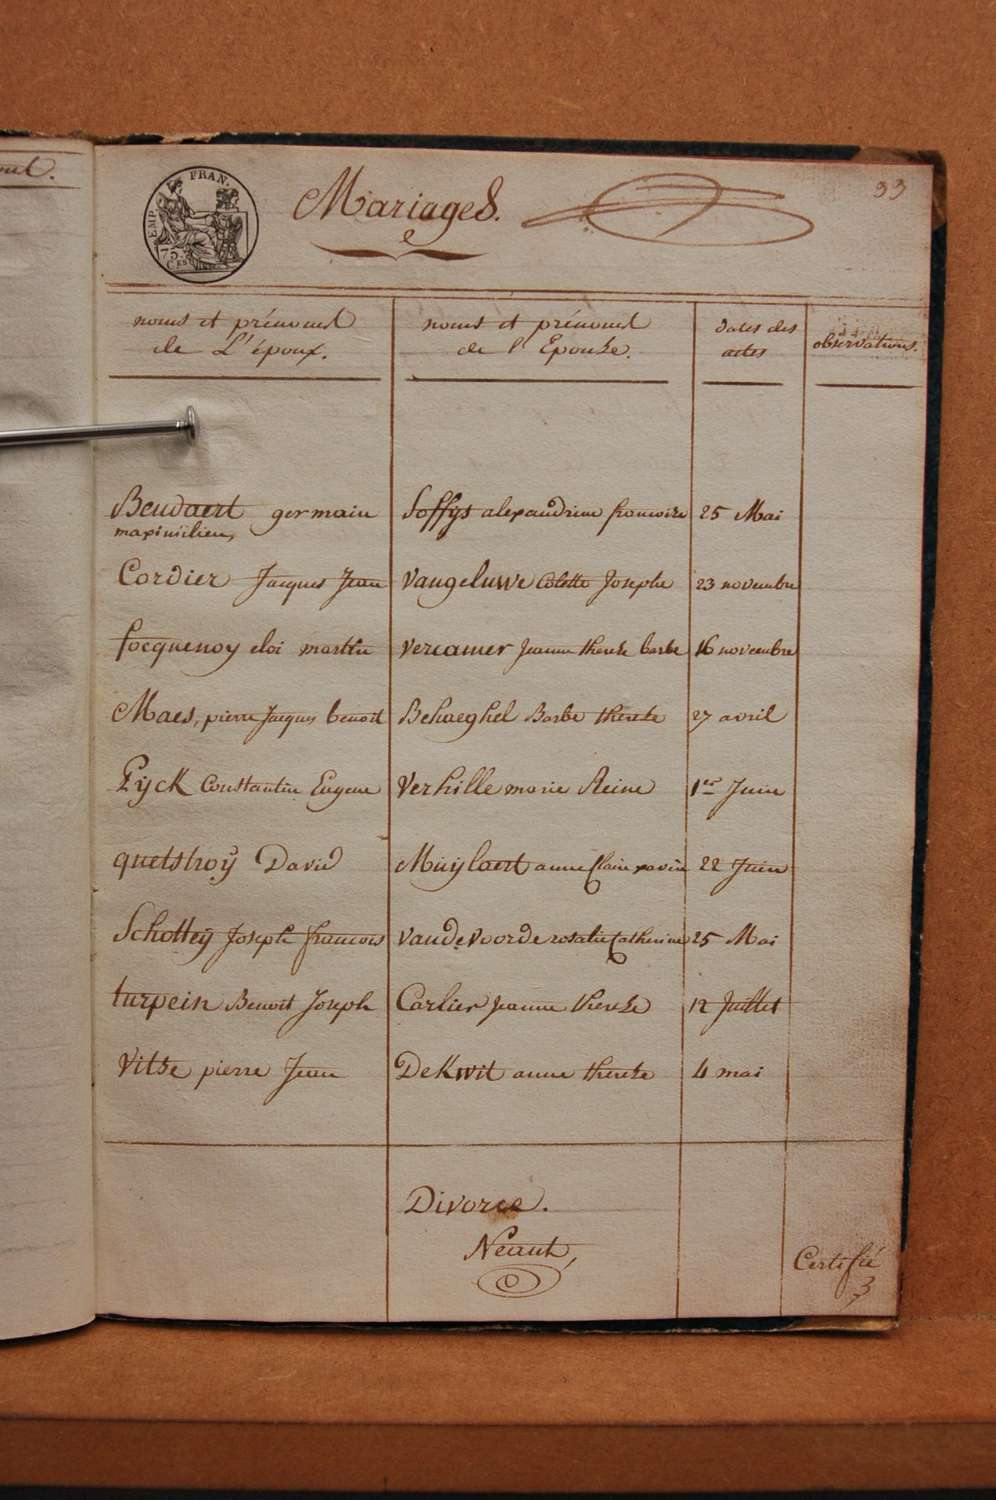 EMP. FRAN.
75
CES
Mariages.
33
noms et prénoms
de L'époux.
noms et prénoms
de l'Epouse.
dates des
actes
observations.
Beudaert germain
maximilien,
Soffys alexandrine francoise
25 Mai
Cordier Jacques Jean
vangeluwe Colette Josephe
23 novembre
focquenoy eloi martin
vercamer Jeanne therese barbe
16 novembre
Maes, pierre Jacques benoit
Behaeghel Barbe therese
27 avril
Pÿck Constantin Eugene
Verhille marie Reine
1er Juin
quetstroÿ David
Muÿlaert anne Claire xavier
22 Juin
Schotteÿ Joseph francois
vandevoorde rosalie Catherine
25 Mai
turpein Benoit Joseph
Carlier Jeanne therese
12 Juillet
Vitse pierre Jean
DeKwit anne therese
4 mai
Divorce.
Néant,
Certifié